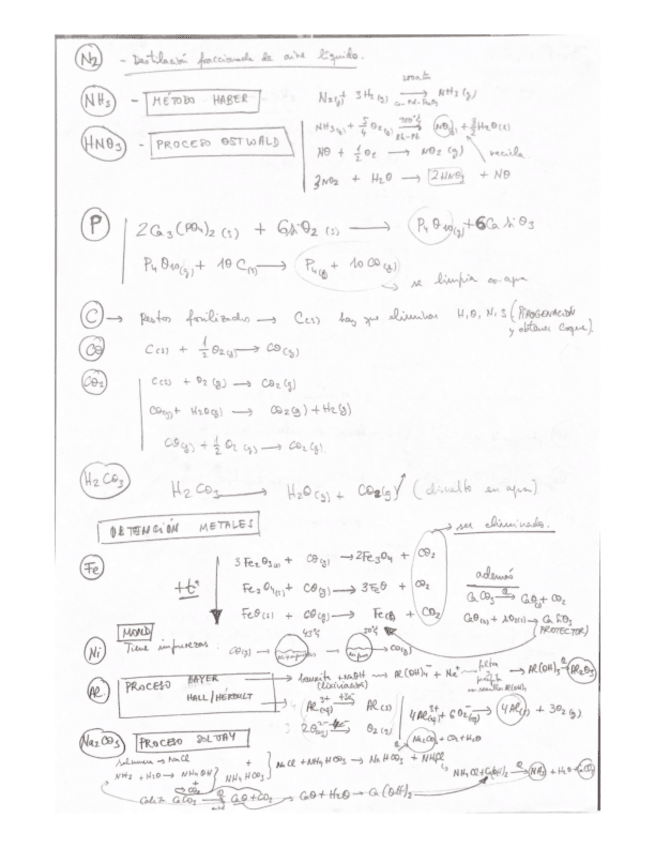 N2 - Destilación fraccionada de aire líquido.
NH3 - MÉTODO HABER N2(g) + 3H2(g) → NH3(g)
HNO3 - PROCESO OSTWALD
NH3(g) + 5/4 O2(g) → NO(g) + 3/2 H2O(g)
NO + 1/2 O2 → NO2(g) recicla
3NO2 + H2O → 2HNO3 + NO
P 2Ca3(PO4)2(s) + 6SiO2(s) → P4O10(g) + 6CaSiO3
P4O10(g) + 10C(s) → P4(g) + 10CO(g)
se limpia con agua
C → Restos fosilizados → C(s) hay que eliminar H, O, N, S (PIROGENACIÓN
y obtener coque)
CO C(s) + 1/2 O2(g) → CO(g)
CO2 C(s) + O2(g) → CO2(g)
CO(g) + H2O(g) → CO2(g) + H2(g)
CO(g) + 1/2 O2(g) → CO2(g)
H2CO3 H2CO3 → H2O(g) + CO2(g) (disuelto en agua)
OBTENCIÓN METALES
ser eliminado.
Fe +tº
3Fe2O3(s) + CO(g) → 2Fe3O4 + CO2
Fe3O4(s) + CO(g) → 3FeO + CO2
FeO(s) + CO(g) → Fe(l) + CO2
además
CaCO3 → CaO(s) + CO2
CaO(s) + SiO2(s) → CaSiO3
(PROTECTOR)
MOND
Ni Tiene impurezas: CO(g) → → CO(g)
Al PROCESO BAYER
HALL/HÉROULT
bauxita + NaOH → Al(OH)4- + Na+ → filtra → Al(OH)3 → Al2O3
Al3+ → Al(s)
2O2- → O2(g)
4Al3+ + 6O2- → 4Al(s) + 3O2(g)
Na2CO3 PROCESO SOLVAY
Na2CO3 + CO2 + H2O
salmuera → NaCl
NH3 + H2O → NH4OH
+ CO2
NH4HCO3
NaCl + NH4HCO3 → NaHCO3 + NH4Cl
NH4Cl + Ca(OH)2 → NH3 + H2O + CaCl2
Caliza CaCO3 → CaO + CO2 → CaO + H2O → Ca(OH)2